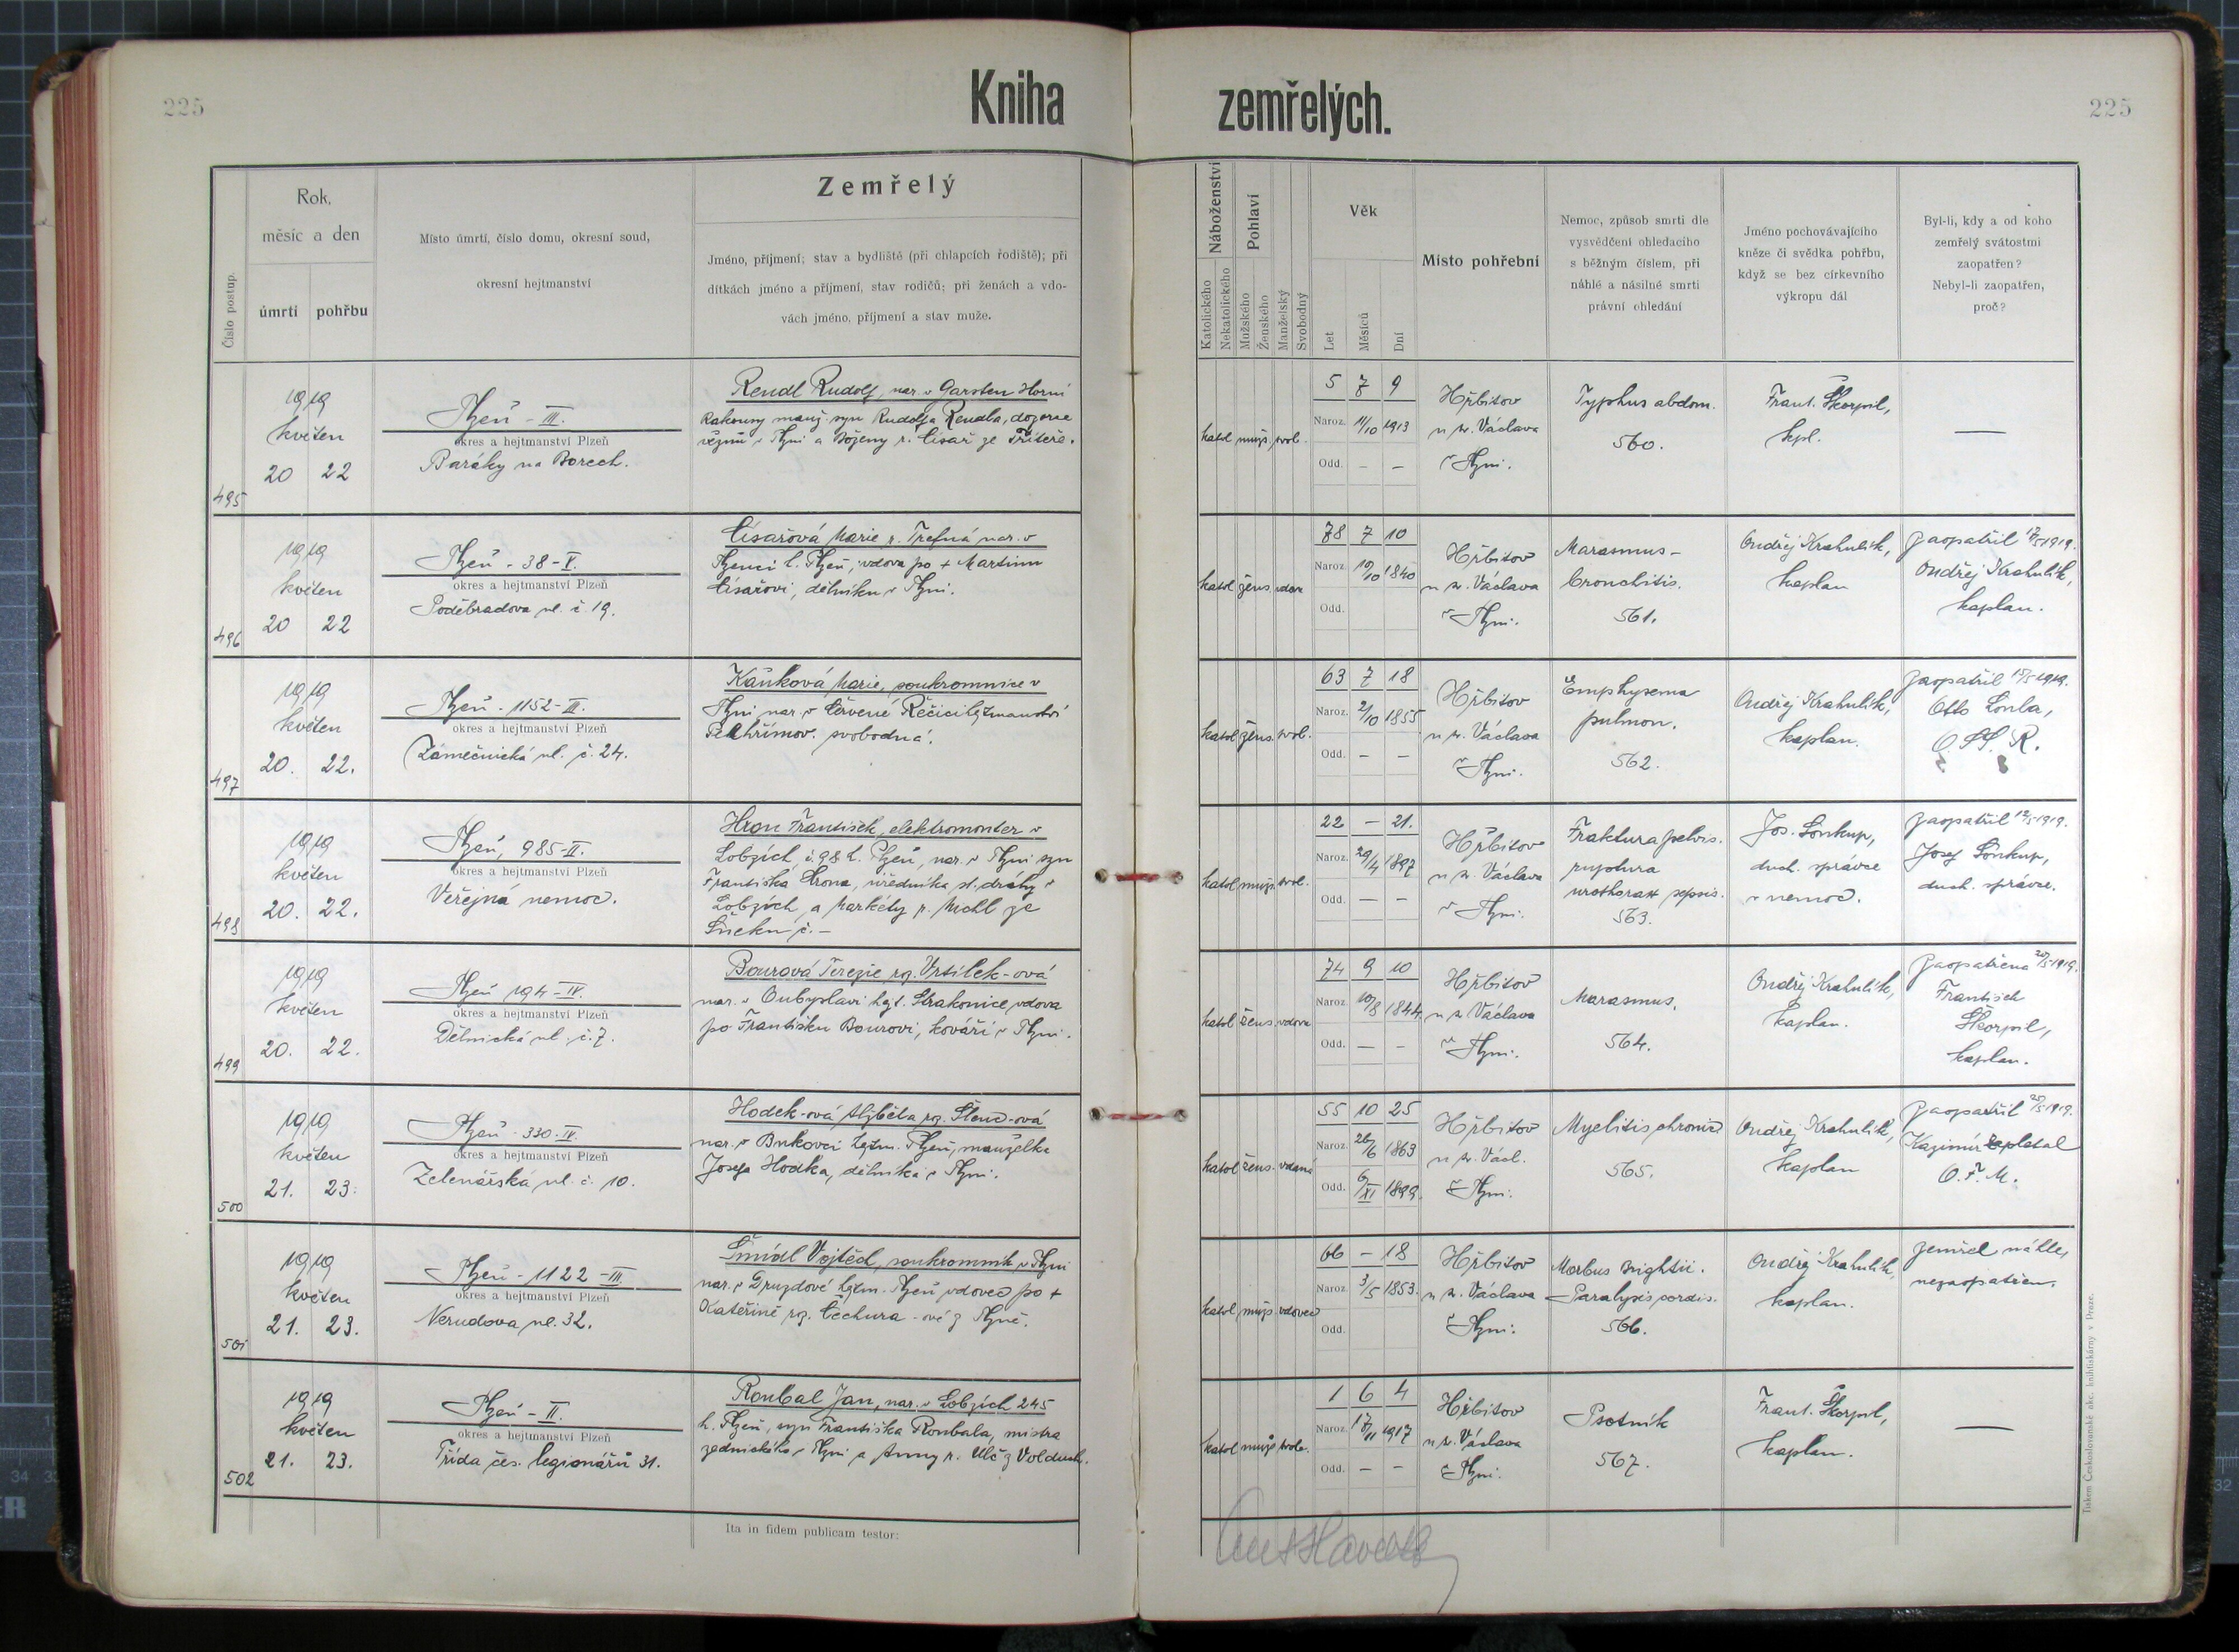 225
Kniha
zemřelých.
225
Číslo postup.
Rok,
měsíc a den
úmrtí
pohřbu
Místo úmrtí, číslo domu, okresní soud,
okresní hejtmanství
Zemřelý
Jméno, příjmení; stav a bydliště (při chlapcích rodiště); při
dítkách jméno a příjmení, stav rodičů; při ženách a vdo-
vách jméno, příjmení a stav muže.
Náboženství
Katolického
Nekatolického
Pohlaví
Mužského
Ženského
Manželský
Svobodný
Věk
Let
Měsíců
Dní
Místo pohřební
Nemoc, způsob smrti dle
vysvědčení ohledacího
s běžným číslem, při
náhlé a násilné smrti
právní ohledání
Jméno pochovávajícího
kněze či svědka pohřbu,
když se bez církevního
výkropu dál
Byl-li, kdy a od koho
zemřelý svátostmi
zaopatřen?
Nebyl-li zaopatřen,
proč?
495
1919
květen
20 22
Plzeň - III.
okres a hejtmanství Plzeň
Baráky na Borech.
Rendl Rudolf, nar. v Garsten Horní
Rakousy manž. syn Rudolfa Rendla, dozorce
vězňů v Plzni a Boženy r. Císař ze
katol. muž. svob.
5 7 9
Naroz. 11/10 1913
Odd. – –
Hřbitov
u sv. Václava
v Plzni.
Typhus abdom.
560.
Frant. Škorpil,
kpl.
—
496
1919
květen
20 22
Plzeň - 38 - V.
okres a hejtmanství Plzeň
Poděbradova ul. č 19.
Císařová Marie r. Trefná nar. v
h. Plzeň, vdova po + Martinu
Císařovi, dělníku v Plzni.
katol. žens. vdova
78 7 10
Naroz. 10/10 1840
Odd.
Hřbitov
u sv. Václava
v Plzni.
Marasmus -
bronchitis.
561.
Ondřej Krahulík,
kaplan
zaopatřil 17/5 1919.
Ondřej Krahulík,
kaplan.
497
1919
květen
20. 22.
Plzeň - 1152 - III.
okres a hejtmanství Plzeň
Zámečnická ul. č. 24.
Kaňková Marie, soukromnice v
Plzni nar. v Červené Řečici hejtmanství
Pelhřimov. svobodná.
katol. žens. svob.
63 7 18
Naroz. 2/10 1855
Odd. – –
Hřbitov
u sv. Václava
v Plzni.
Emphysema
pulmon.
562.
Ondřej Krahulík,
kaplan.
zaopatřil 17/5 1919.
Otto
C. SS. R.
498
1919
květen
20. 22.
Plzeň, 985 - II.
okres a hejtmanství Plzeň
Veřejná nemoc.
Hron František, elektromonter v
Lobzích, č. 98 h. Plzeň, nar. v Plzni syn
Františka Hrona, úředníka st. dráhy v
Lobzích a Markéty r. Michl ze
č. –
katol. muž. svob.
22 – 21.
Naroz. 29/4 1897
Odd. – –
Hřbitov
u sv. Václava
v Plzni.
Fraktura pelvis.
ruptura
sepsis.
563.
Jos. Soukup,
duch. správce
v nemoc.
zaopatřil 12/5 1919.
Josef Soukup,
duch. správce.
499
1919
květen
20. 22.
Plzeň 194 - IV.
okres a hejtmanství Plzeň
Dělnická ul. č. 7.
Bourová Terezie roz. Vrtílek-ová
nar. v hejt. Strakonice, vdova
po Františku Bourovi, kováři v Plzni.
katol. žens. vdova
74 9 10
Naroz. 10/8 1844
Odd. – –
Hřbitov
u sv. Václava
v Plzni.
Marasmus.
564.
Ondřej Krahulík,
kaplan.
zaopatřena 20/5 1919.
František
Škorpil,
kaplan.
500
1919
květen
21. 23.
Plzeň - 330 - IV.
okres a hejtmanství Plzeň
Zelenářská ul. č. 10.
Hodek-ová Alžběta roz. Šlenc-ová
nar. v Bukovci hejtm. Plzeň, manželka
Josefa Hodka, dělníka v Plzni.
katol. žens. vdaná
55 10 25
Naroz. 26/6 1863
Odd. 6/XI 1899.
Hřbitov
u sv. Václ.
v Plzni.
Myelitis chronica
565.
Ondřej Krahulík,
kaplan
zaopatřil 20/5 1919.
Kazimír Zapletal
O. F. M.
501
1919
květen
21. 23.
Plzeň - 1122 - III.
okres a hejtmanství Plzeň
Nerudova ul. 32.
Šmídl Vojtěch, soukromník v Plzni
nar. v Druzdové hejtm. Plzeň vdovec po +
Kateřině roz. Čechura-ové z Plzně.
katol. muž. vdovec
66 – 18
Naroz. 3/5 1853.
Odd.
Hřbitov
u sv. Václava
v Plzni.
Morbus Brightii.
Paralysis cordis.
566.
Ondřej Krahulík,
kaplan.
zemřel náhle,
nezaopatřen.
502
1919
květen
21. 23.
Plzeň - II.
okres a hejtmanství Plzeň
Třída čes. legionářů 31.
Roubal Jan, nar. v Lobzích 245
h. Plzeň, syn Františka Roubala, mistra
zednického v Plzni a Anny r. Ulč z Volduch.
katol. muž. svob.
1 6 4
Naroz. 17/11 1917
Odd. – –
Hřbitov
u sv. Václava
v Plzni.
Psotník
567.
Frant. Škorpil,
kaplan.
—
Ita in fidem publicam testor:
Tiskem Československé akc. knihtiskárny v Praze.